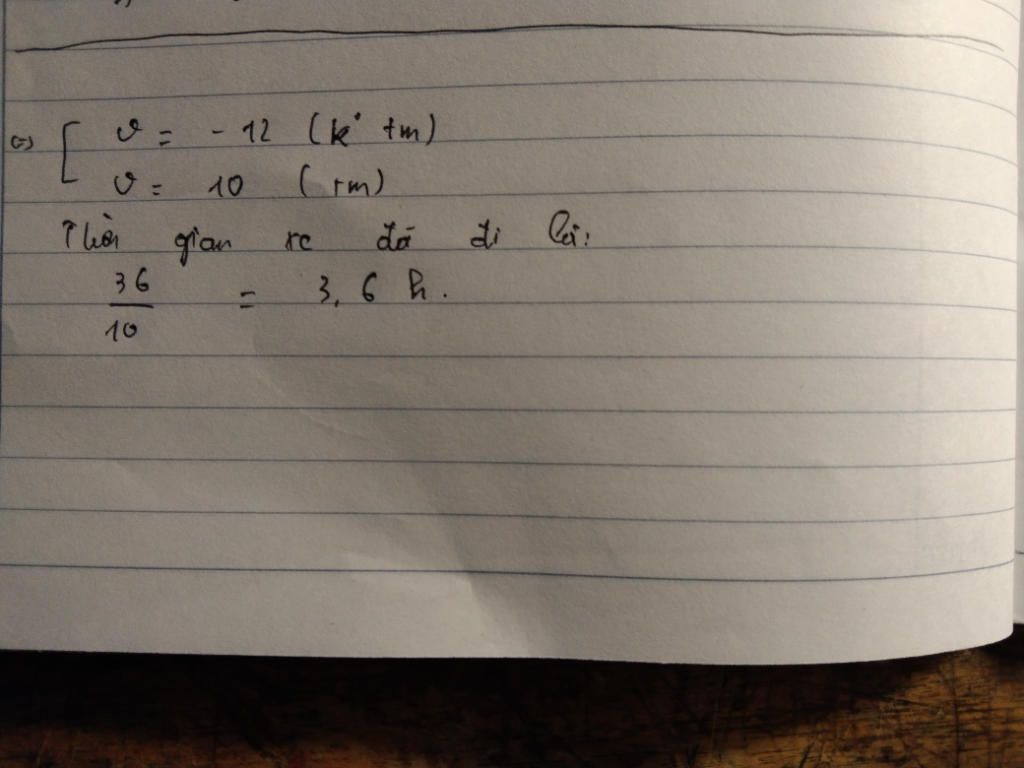 <=> [ v = -12 (k° tm)
v = 10 (tm)
Thời gian xe đã đi là:
36/10 = 3,6 h.